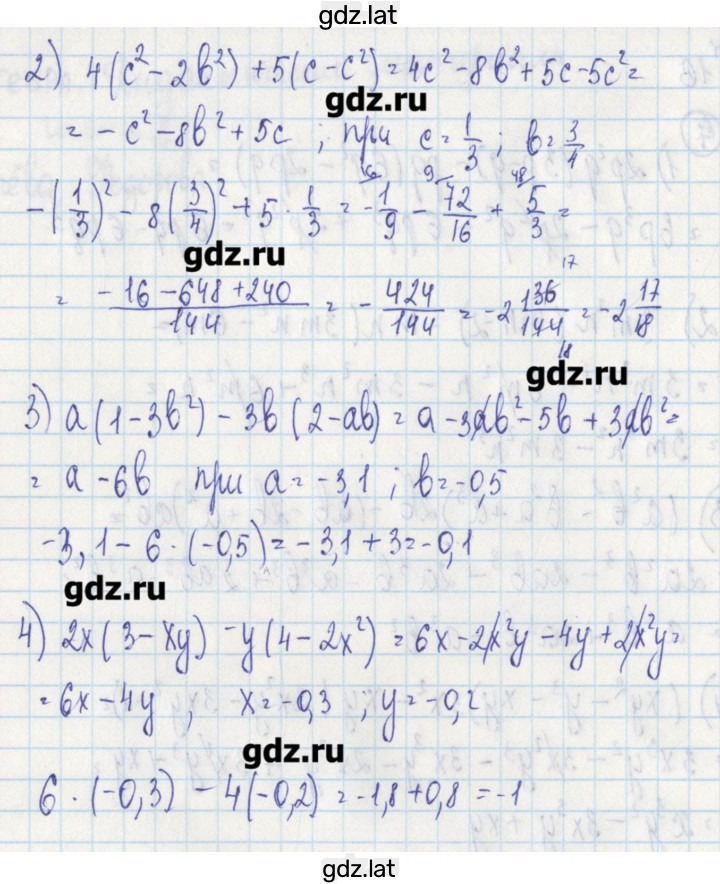 gdz.lat
2) 4(c² - 2b²) + 5(c - c²) = 4c² - 8b² + 5c - 5c² =
gdz.ru
= - c² - 8b² + 5c ; при c = 1/3 ; b = 3/4
16 9 48
-(1/3)² - 8(3/4)² + 5 · 1/3 = - 1/9 - 72/16 + 5/3 =
gdz.ru
= (-16 - 648 + 240)/144 = - 424/144 = -2 136/144 = -2 17/18
17
18
gdz.ru
3) a(1 - 3b²) - 3b(2 - ab) = a - 3ab² - 5b + 3ab² =
= a - 6b при a = -3,1 ; b = -0,5
-3,1 - 6 · (-0,5) = -3,1 + 3 = -0,1
gdz.ru
4) 2x(3 - xy) - y(4 - 2x²) = 6x - 2x²y - 4y + 2x²y =
= 6x - 4y , x = -0,3 ; y = -0,2
gdz.ru
6 · (-0,3) - 4(-0,2) = -1,8 + 0,8 = -1
gdz.lat